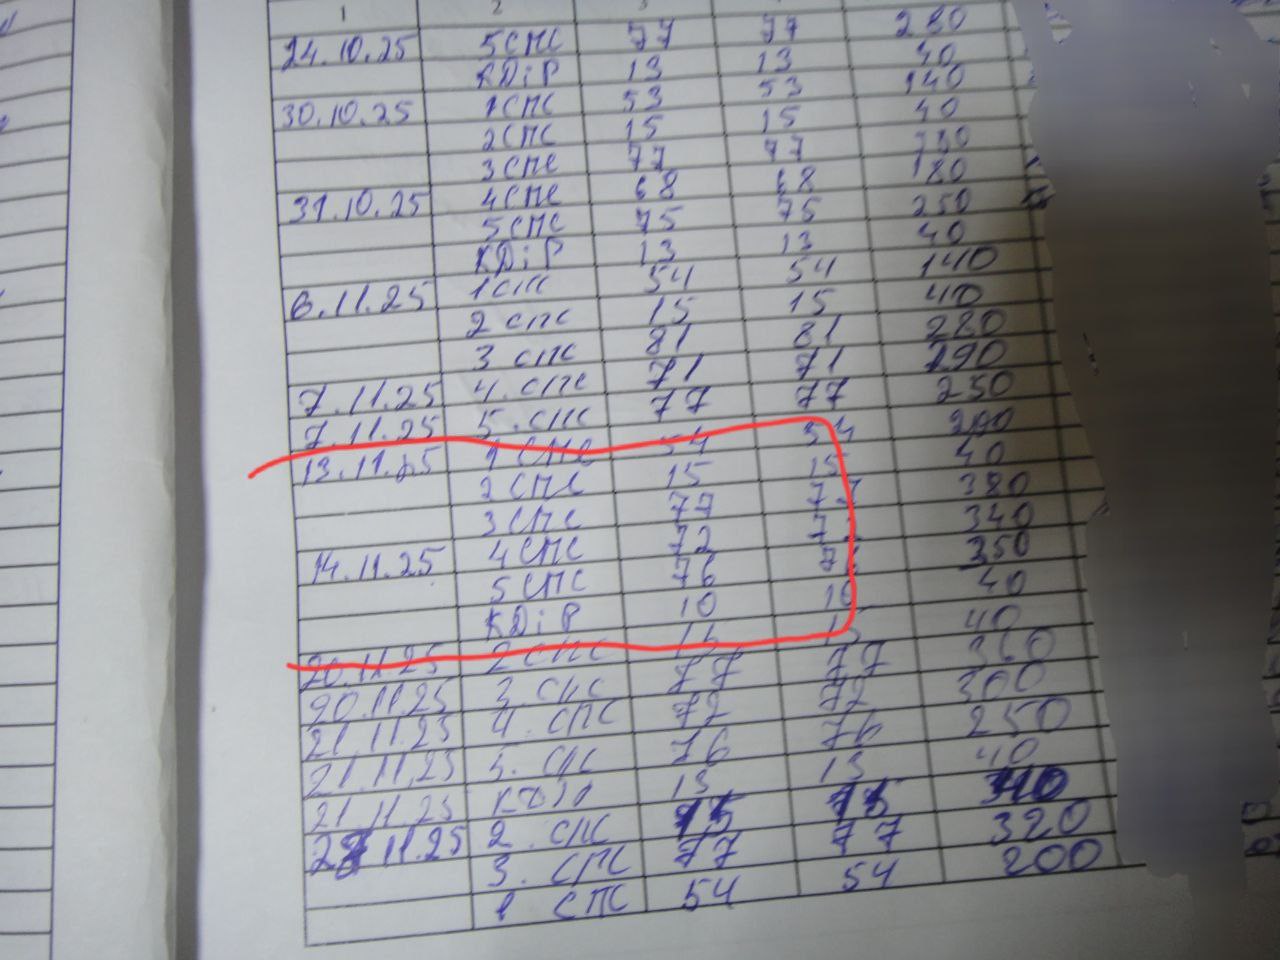 1 2 3
24.10.25 5 СПС 77 77 280
KDiP 13 13 40
30.10.25 1 СПС 53 53 140
2 СПС 15 15 40
3 СПС 77 77
31.10.25 4 СПС 68 68 180
5 СПС 75 75 250
KDiP 13 13 40
6.11.25 1 СПС 54 54 140
2 СПС 15 15 40
3 СПС 81 81 280
7.11.25 4. СПС 71 71 290
7.11.25 5. СПС 77 77 250
13.11.25 1 СПС 54 54
2 СПС 15 15 40
3 СПС 77 77 380
14.11.25 4 СПС 72 340
5 СПС 76 350
KDiP 10 10 40
20.11.25 2 СПС 15 15 40
20.11.25 3. СПС 77 77 360
21.11.25 4. СПС 72 72 300
21.11.25 5. СПС 76 76 250
21.11.25 13 13 40
11.25 2. СПС 15 15
3. СПС 77 77 320
1 СПС 54 54 200